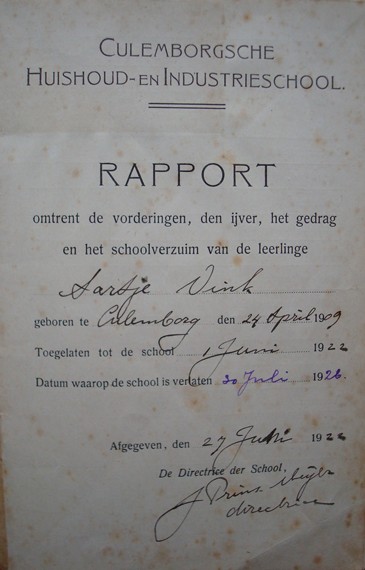 CULEMBORGSCHE
HUISHOUD- EN INDUSTRIESCHOOL.
RAPPORT
omtrent de vorderingen, den ijver, het gedrag
en het schoolverzuim van de leerlinge
Aartje Vink
geboren te Culemborg den 24 April 1909
Toegelaten tot de school 1 Juni 1922
Datum waarop de school is verlaten 30 Juli 1926.
Afgegeven, den 27 Juni 1922
De Directrice der School,
J Prins
directrice